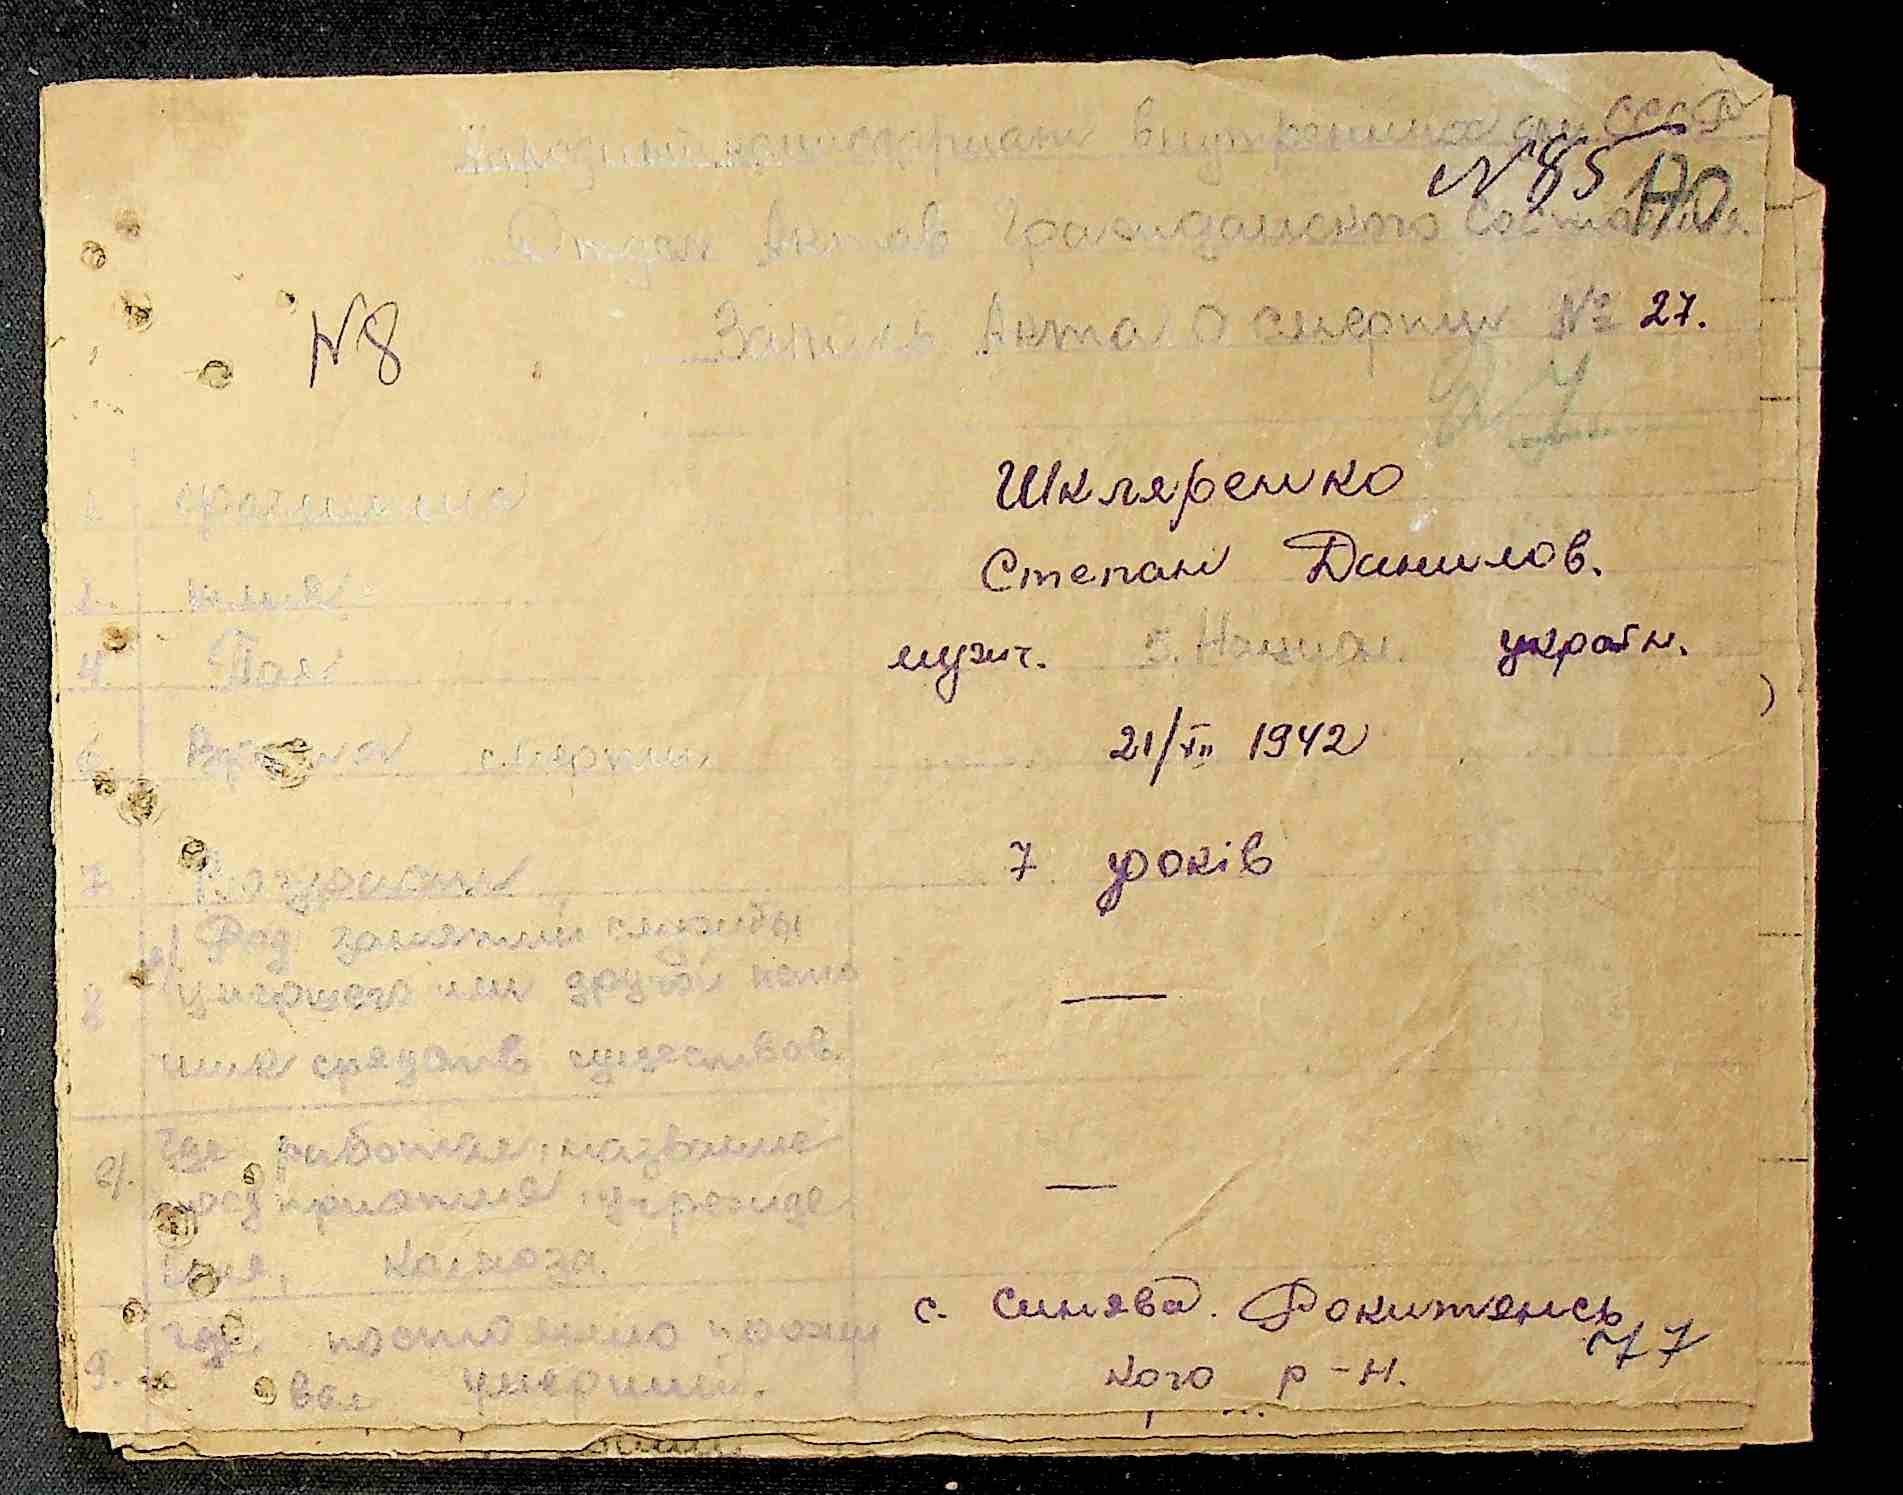 Народный комиссариат внутренних дел СССР
N 85 170
Отдел Актов Гражданского Состояния.
N8
Запись Акта О смерти № 27.
1. Фамилия Шкляренко
2. имя Степан Данилов.
4. Пол мужч. 5. Национ. україн.
6. Время смерти 21/VII 1942
7. Возраст 7 років
а/ Род занятий службы
8 умершего или другой исто
ник средств существов.
б/. Где работал, название
предприятия, учрежде
ния, колхоза.
9. где постоянно прожи с. Синява. Рокитянсь
вал умерший. кого р-н.
77